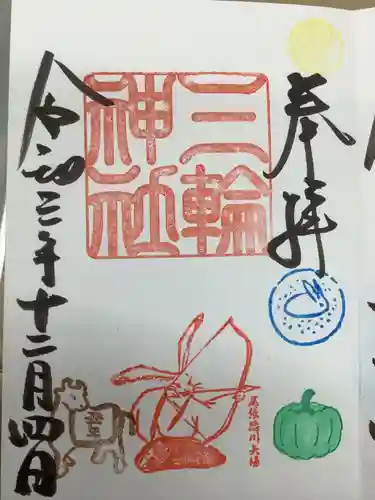 奉拝
三輪
神社
尾張徳川大場
令和三年十二月四日